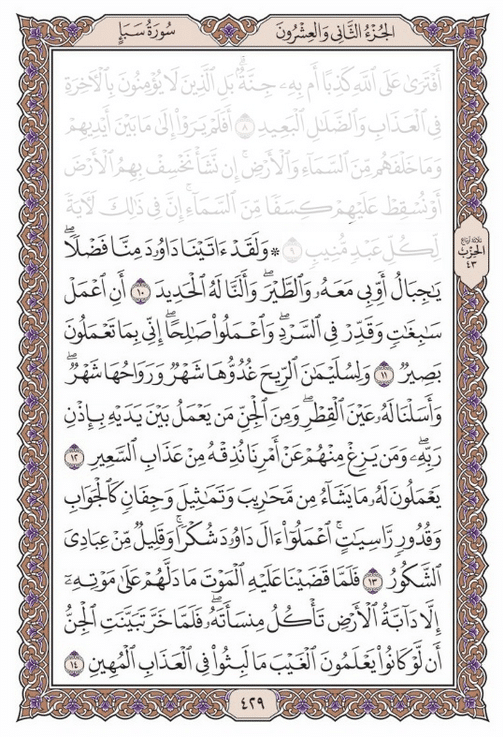 الجُزْءُ الثَّانِي وَالعِشْرُونَ
سُورَةُ سَبَإٍ
أَفْتَرَىٰ عَلَى ٱللَّهِ كَذِبًا أَم بِهِۦ جِنَّةُۢۗ بَلِ ٱلَّذِينَ لَا يُؤْمِنُونَ بِٱلْأَخِرَةِ
فِى ٱلْعَذَابِ وَٱلضَّلَٰلِ ٱلْبَعِيدِ ٨ أَفَلَمْ يَرَوْا۟ إِلَىٰ مَا بَيْنَ أَيْدِيهِمْ
وَمَا خَلْفَهُم مِّنَ ٱلسَّمَآءِ وَٱلْأَرْضِۚ إِن نَّشَأْ نَخْسِفْ بِهِمُ ٱلْأَرْضَ
أَوْ نُسْقِطْ عَلَيْهِمْ كِسَفًا مِّنَ ٱلسَّمَآءِۚ إِنَّ فِى ذَٰلِكَ لَـَٔايَةً
لِّكُلِّ عَبْدٍ مُّنِيبٍ ٩ ۞ وَلَقَدْ ءَاتَيْنَا دَاوُۥدَ مِنَّا فَضْلًاۖ
يَٰجِبَالُ أَوِّبِى مَعَهُۥ وَٱلطَّيْرَۖ وَأَلَنَّا لَهُ ٱلْحَدِيدَ ١٠ أَنِ ٱعْمَلْ
سَٰبِغَٰتٍ وَقَدِّرْ فِى ٱلسَّرْدِۖ وَٱعْمَلُوا۟ صَٰلِحًاۖ إِنِّى بِمَا تَعْمَلُونَ
بَصِيرٌ ١١ وَلِسُلَيْمَٰنَ ٱلرِّيحَ غُدُوُّهَا شَهْرٌ وَرَوَاحُهَا شَهْرٌۖ
وَأَسَلْنَا لَهُۥ عَيْنَ ٱلْقِطْرِۖ وَمِنَ ٱلْجِنِّ مَن يَعْمَلُ بَيْنَ يَدَيْهِ بِإِذْنِ
رَبِّهِۦۖ وَمَن يَزِغْ مِنْهُمْ عَنْ أَمْرِنَا نُذِقْهُ مِنْ عَذَابِ ٱلسَّعِيرِ ١٢
يَعْمَلُونَ لَهُۥ مَا يَشَآءُ مِن مَّحَٰرِيبَ وَتَمَٰثِيلَ وَجِفَانٍ كَٱلْجَوَابِ
وَقُدُورٍ رَّاسِيَٰتٍۚ ٱعْمَلُوٓا۟ ءَالَ دَاوُۥدَ شُكْرًاۚ وَقَلِيلٌ مِّنْ عِبَادِىَ
ٱلشَّكُورُ ١٣ فَلَمَّا قَضَيْنَا عَلَيْهِ ٱلْمَوْتَ مَا دَلَّهُمْ عَلَىٰ مَوْتِهِۦٓ
إِلَّا دَآبَّةُ ٱلْأَرْضِ تَأْكُلُ مِنسَأَتَهُۥۖ فَلَمَّا خَرَّ تَبَيَّنَتِ ٱلْجِنُّ
أَن لَّوْ كَانُوا۟ يَعْلَمُونَ ٱلْغَيْبَ مَا لَبِثُوا۟ فِى ٱلْعَذَابِ ٱلْمُهِينِ ١٤
ثلاثة أرباع
الحزب
٤٣
٤٢٩